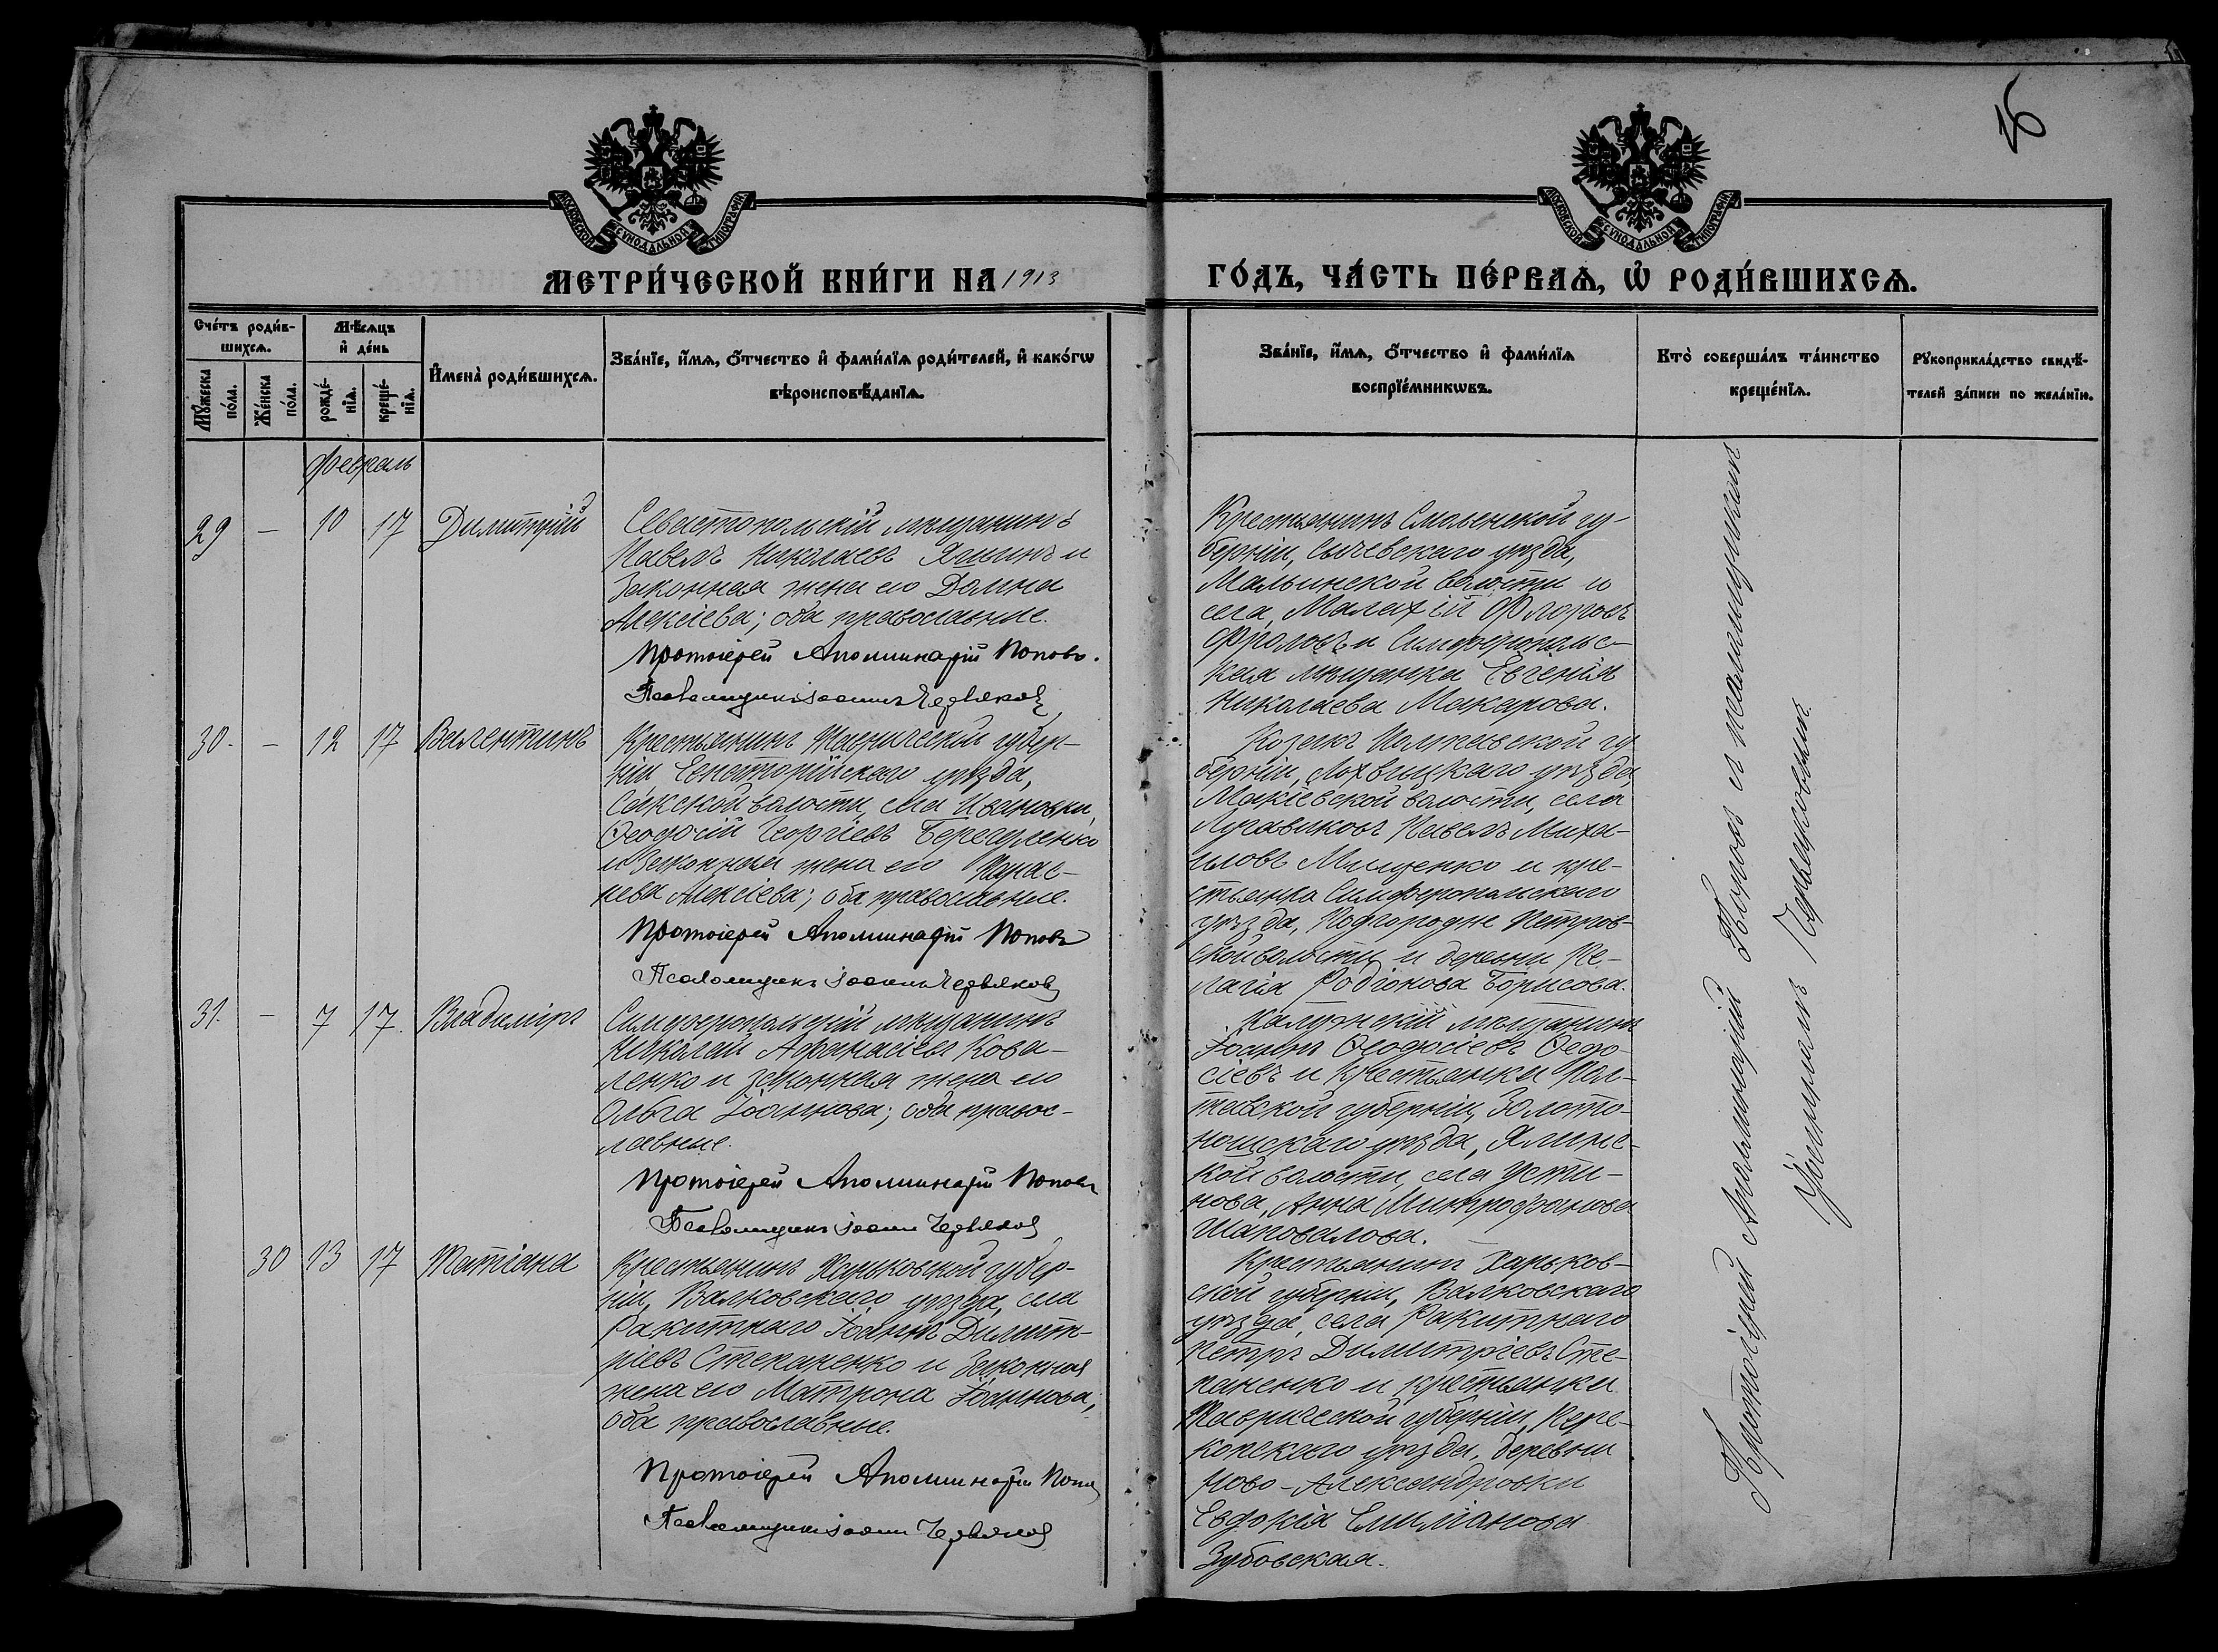 16
МОСКОВСКОЙ СУНОДАЛЬНОЙ ТИПОГРАФІИ
МОСКОВСКОЙ СУНОДАЛЬНОЙ ТИПОГРАФІИ
МЕТРИ́ЧЕСКОЙ КНИ́ГИ НА 1913
ГО́ДЪ, ЧА́СТЬ ПЕ́РВАѦ, Ѽ РОДИ́ВШИХСѦ.
Сче́тъ роди́в-
шихсѧ.
Мꙋ́жеска по́ла.
Же́нска по́ла.
Мѣ́сѧцъ
и҆ де́нь
рожде́-
нїѧ.
креще́-
нїѧ.
И҆мена̀ роди́вшихсѧ.
Зва́нїе, и҆́мѧ, ѻ҆́тчество и҆ фами́лїѧ роди́телей, и҆ како́гѡ
вѣроисповѣ́данїѧ.
Зва́нїе, и҆́мѧ, ѻ҆́тчество и҆ фами́лїѧ
воспрїе́мникѡвъ.
Кто̀ соверша́лъ та́инство
креще́нїѧ.
Рꙋкоприкла́дство свидѣ́-
телей за́писи по жела́нїю.
Февраль
29 — 10 17 Димитрій
Севастопольскій мѣщанинъ
Павелъ Николаевъ и
законная жена его Домна
Алексіева; оба православные.
Протоіерей Аполлинарій Поповъ.
Псаломщикъ Іоаннъ Червяковъ
Крестьянинъ Смоленской гу-
берніи, Сычевскаго уѣзда,
волости и
села, Малахій Флоровъ
Фроловъ и Симферопольс-
кая мѣщанка Евгенія
Николаева Макарова.
30. — 12 17 Валентинъ
Крестьянинъ Таврической губер-
ніи Евпаторійскаго уѣзда,
Сакской волости, села Ивановки,
Ѳеодосій Георгіевъ
и законная жена его
Алексіева; оба православные.
Протоіерей Аполлинарій Поповъ
Псаломщикъ Іоаннъ Червяковъ
Козакъ Полтавской гу
берніи, Лохвицкаго уѣзда,
волости, села
Павелъ Миха-
иловъ Мищенко и кре-
стьянка Симферопольскаго
уѣзда, Подгородне Петров-
ской волости и деревни Пе-
лагія Родіонова Борисова.
31. — 7 17. Владиміръ
Симферопольскій мѣщанинъ
Николай Афанасіевъ Кова-
ленко и законная жена его
Ольга Іоаннова; оба правос-
лавные.
Протоіерей Аполлинарій Поповъ
Псаломщикъ Іоаннъ Червяковъ
Калужскій мѣщанинъ
Іоаннъ Ѳеодосіевъ Ѳедо-
сіевъ и крестьянка Пол-
тавской губерніи, Золото-
ношскаго уѣзда,
кой волости, села Усти-
нова, Анна Митрофанова
Шаповалова.
30 13 17 Татіана
Крестьянинъ Харьковской губер-
ніи, Валковскаго уѣзда, села
Ракитнаго Іоаннъ Димит-
ріевъ Степаненко и законная
жена его Матрона Іоаннова,
оба православные.
Протоіерей Аполлинарій Поповъ
Псаломщикъ Іоаннъ Червяковъ
Крестьянинъ Харьков-
ской губерніи, Валковскаго
уѣзда, села Ракитнаго
Петръ Димитріевъ Сте-
паненко и крестьянка
Таврической губерніи, Пере-
копскаго уѣзда, деревни
Ново-Александровки
Евдокія Емиліанова
Зубовская.
Протоіерей Аполлинарій Поповъ и псаломщикъ